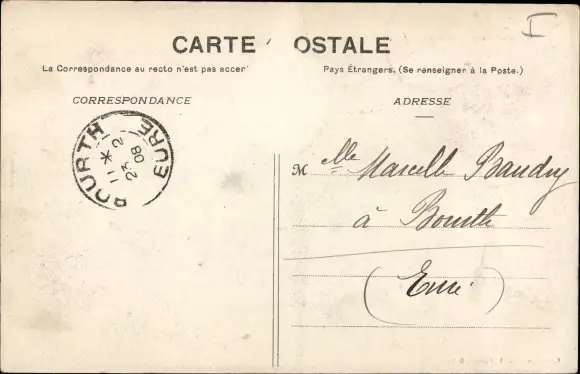 I
CARTE OSTALE
La Correspondance au recto n'est pas accer
Pays Étrangers. (Se renseigner à la Poste.)
CORRESPONDANCE
ADRESSE
BOURTH * EURE
11 * 2
23
08
Mlle Marcelle Baudry
à Bourth
(Eure)